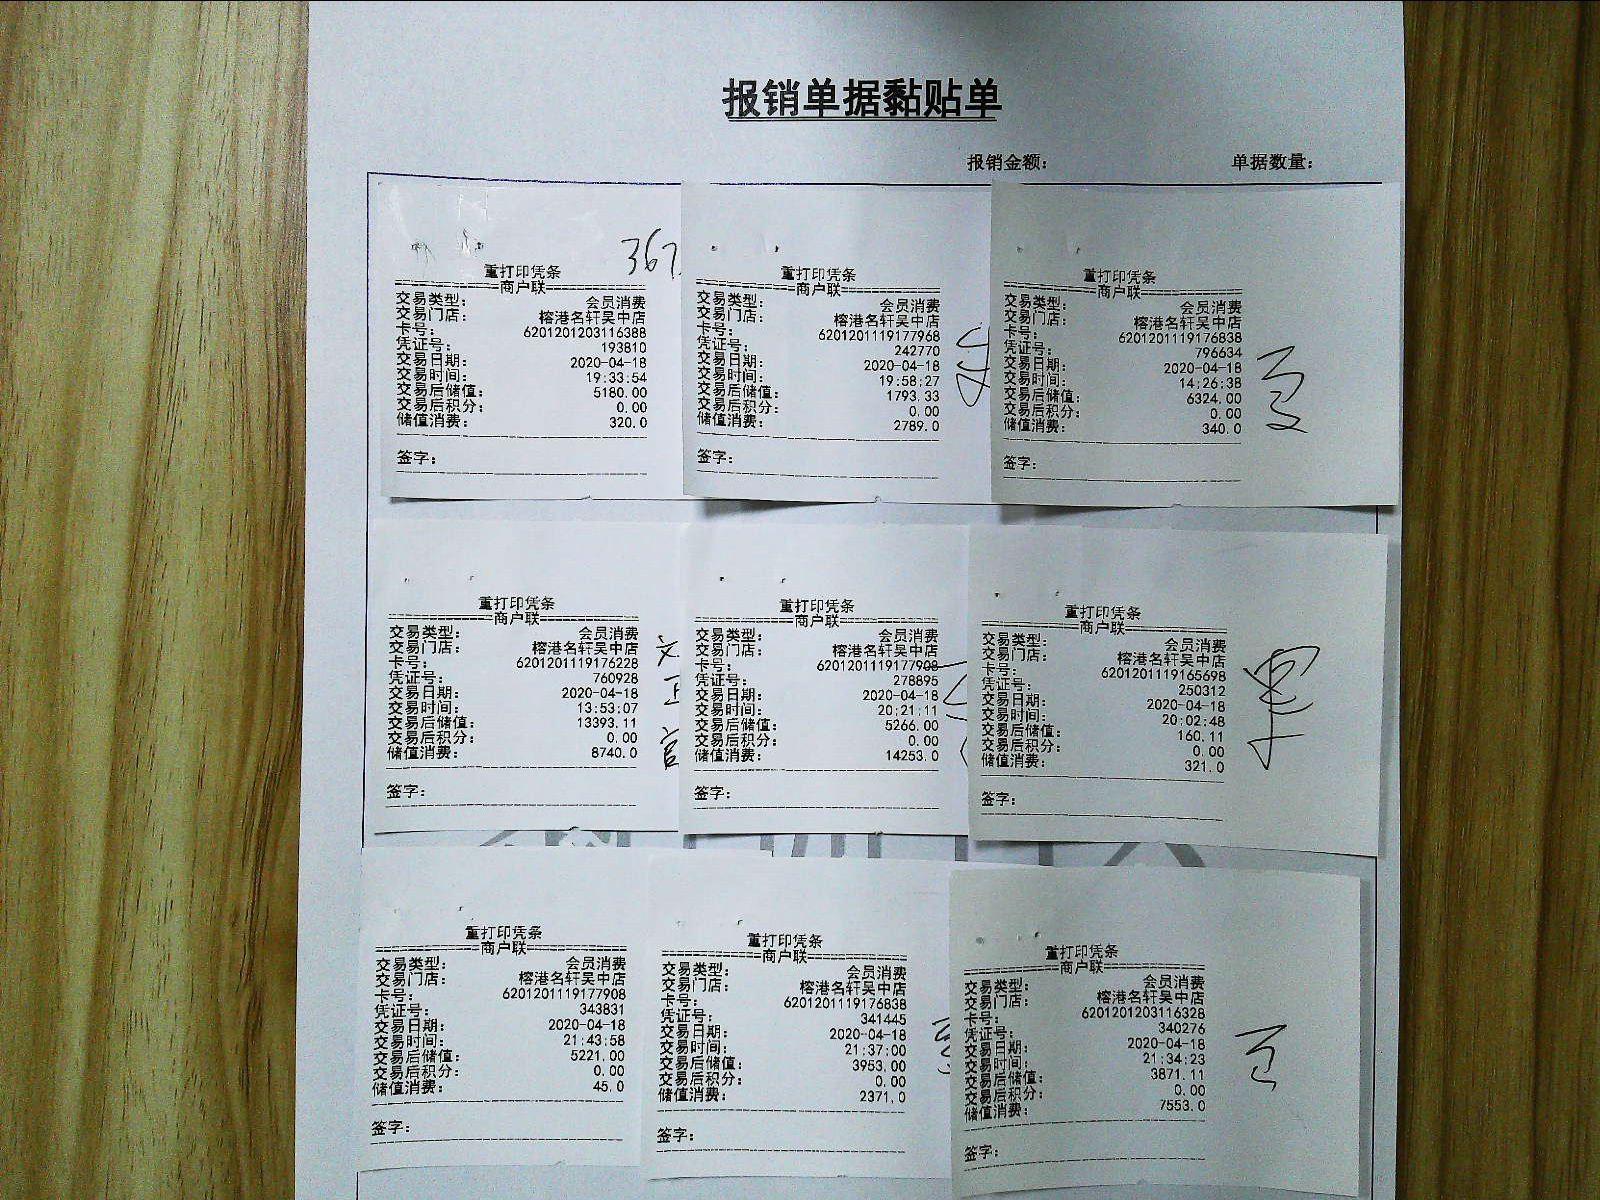 报销单据黏贴单
报销金额：
单据数量：
367
重打印凭条
商户联
交易类型： 会员消费
交易门店： 榕港名轩吴中店
卡号： 6201201203116388
凭证号： 193810
交易日期： 2020-04-18
交易时间： 19:33:54
交易后储值： 5180.00
交易后积分： 0.00
储值消费： 320.0
签字：
重打印凭条
商户联
交易类型： 会员消费
交易门店： 榕港名轩吴中店
卡号： 6201201119177968
凭证号： 242770
交易日期： 2020-04-18
交易时间： 19:58:27
交易后储值： 1793.33
交易后积分： 0.00
储值消费： 2789.0
签字：
重打印凭条
商户联
交易类型： 会员消费
交易门店： 榕港名轩吴中店
卡号： 6201201119176838
凭证号： 796634
交易日期： 2020-04-18
交易时间： 14:26:38
交易后储值： 6324.00
交易后积分： 0.00
储值消费： 340.0
签字：
重打印凭条
商户联
交易类型： 会员消费
交易门店： 榕港名轩吴中店
卡号： 6201201119176228
凭证号： 760928
交易日期： 2020-04-18
交易时间： 13:53:07
交易后储值： 13393.11
交易后积分： 0.00
储值消费： 8740.0
签字：
重打印凭条
商户联
交易类型： 会员消费
交易门店： 榕港名轩吴中店
卡号： 6201201119177908
凭证号： 278895
交易日期： 2020-04-18
交易时间： 20:21:11
交易后储值： 5266.00
交易后积分： 0.00
储值消费： 14253.0
签字：
重打印凭条
商户联
交易类型： 会员消费
交易门店： 榕港名轩吴中店
卡号： 6201201119165698
凭证号： 250312
交易日期： 2020-04-18
交易时间： 20:02:48
交易后储值： 160.11
交易后积分： 0.00
储值消费： 321.0
签字：
重打印凭条
商户联
交易类型： 会员消费
交易门店： 榕港名轩吴中店
卡号： 6201201119177908
凭证号： 343831
交易日期： 2020-04-18
交易时间： 21:43:58
交易后储值： 5221.00
交易后积分： 0.00
储值消费： 45.0
签字：
重打印凭条
商户联
交易类型： 会员消费
交易门店： 榕港名轩吴中店
卡号： 6201201119176838
凭证号： 341445
交易日期： 2020-04-18
交易时间： 21:37:00
交易后储值： 3953.00
交易后积分： 0.00
储值消费： 2371.0
签字：
重打印凭条
商户联
交易类型： 会员消费
交易门店： 榕港名轩吴中店
卡号： 6201201203116328
凭证号： 340276
交易日期： 2020-04-18
交易时间： 21:34:23
交易后储值： 3871.11
交易后积分： 0.00
储值消费： 7553.0
签字：